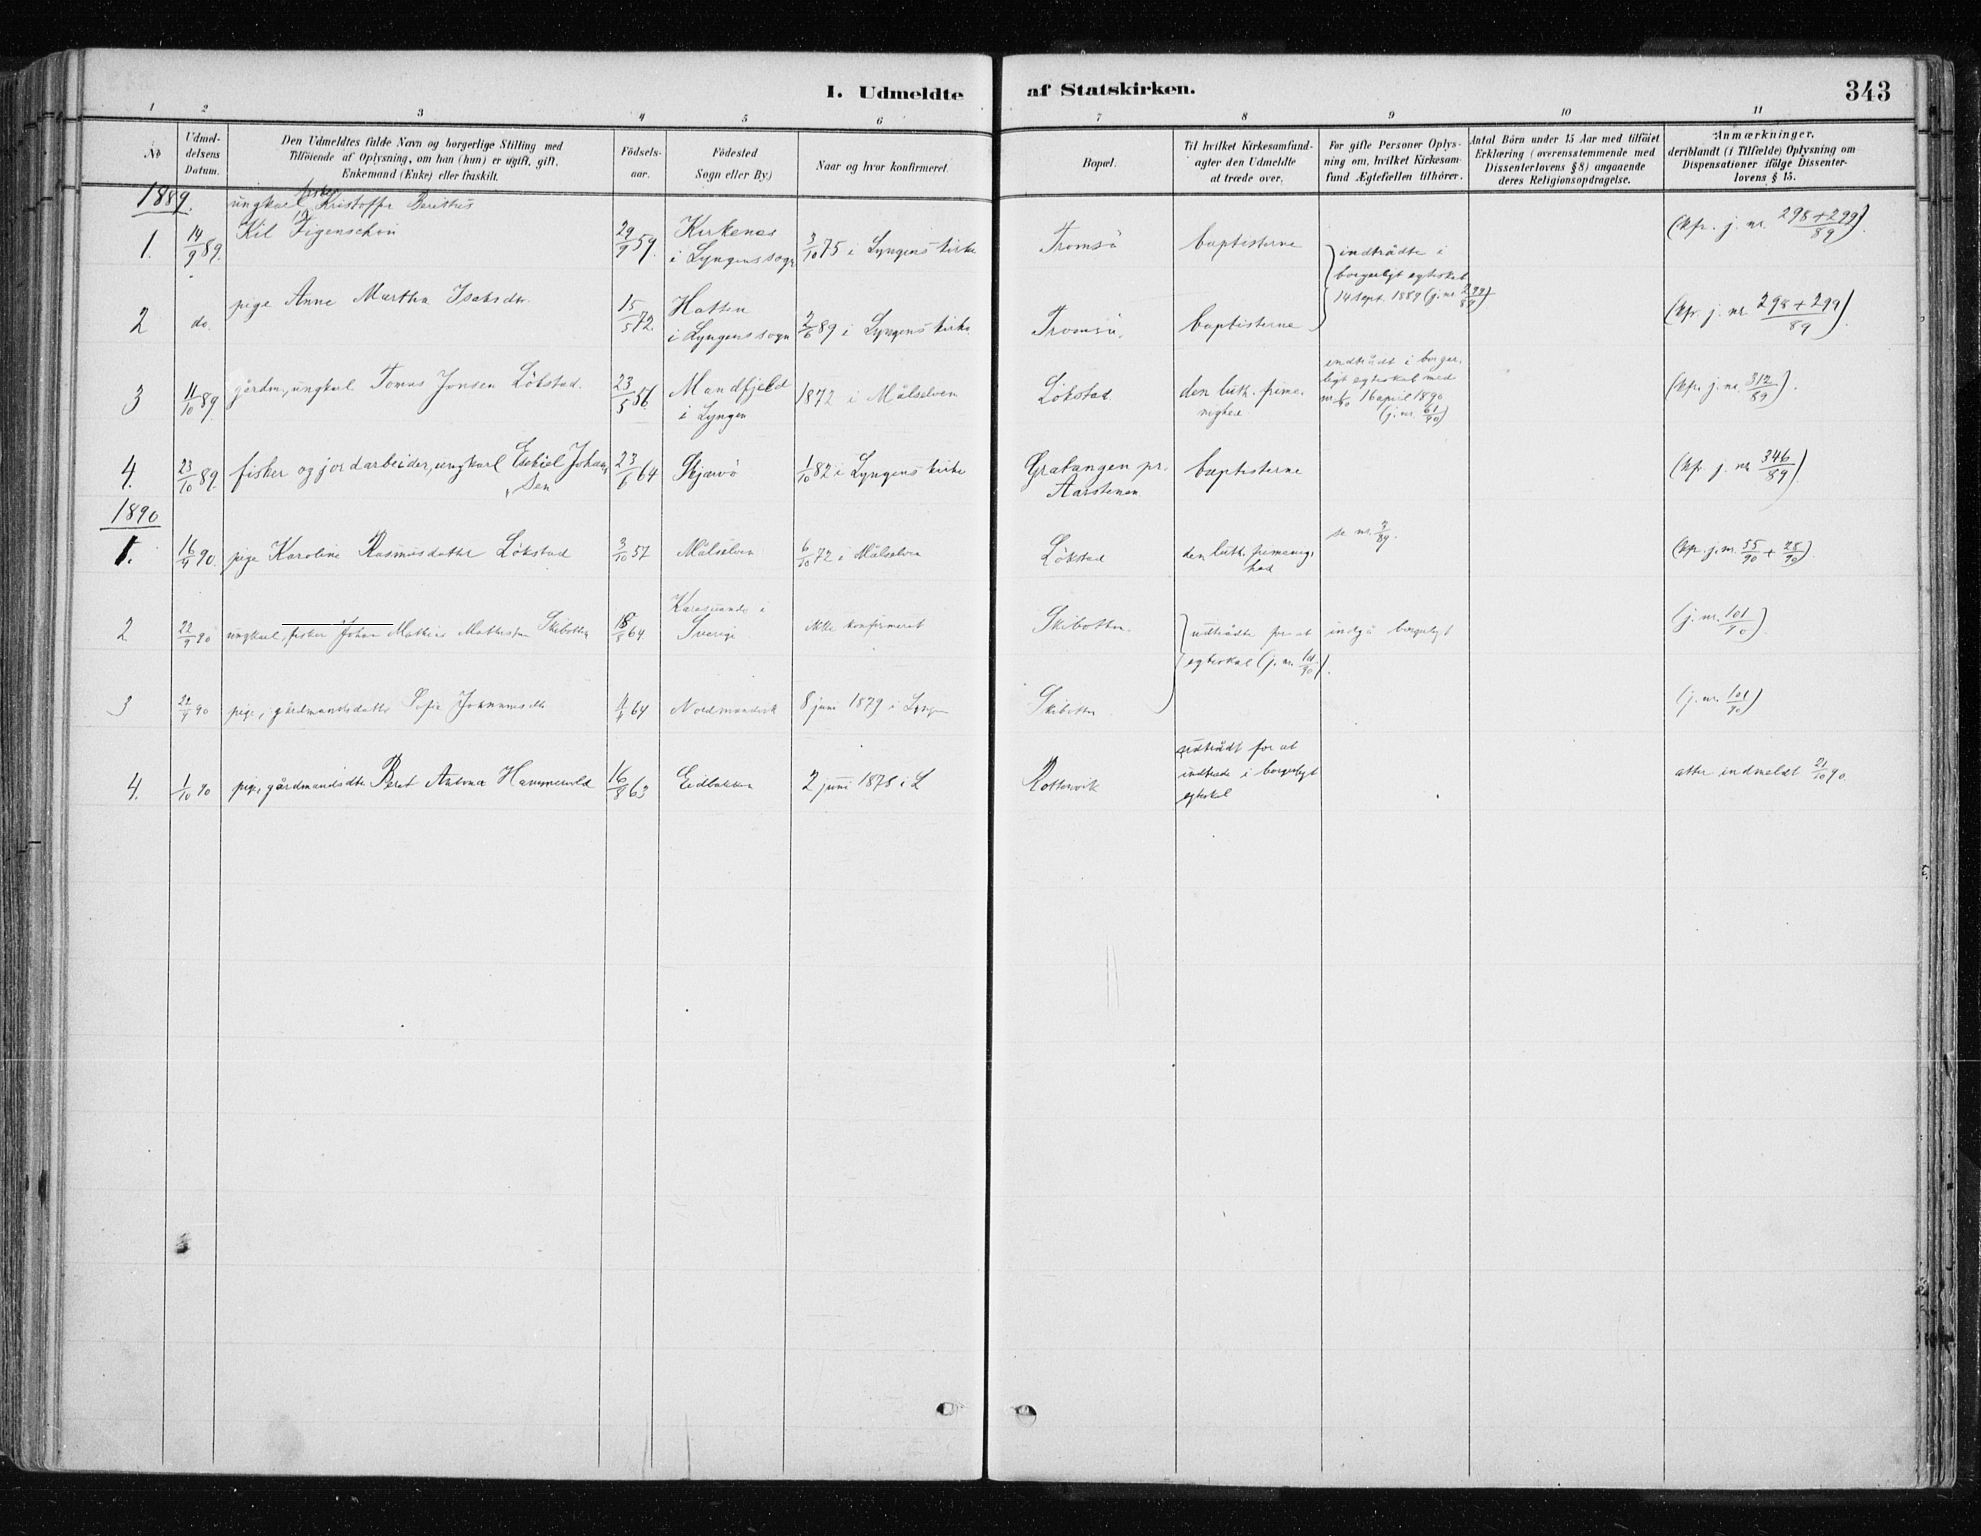 I. Udmeldte af Statskirken. 343
1 2 3 4 5 6 7 8 9 10 11
No
Udmeldelsens Datum.
Den Udmeldtes fulde Navn og borgerlige Stilling med
Tilföiende af Oplysning, om han (hun) er ugift, gift,
Enkemand (Enke) eller fraskilt.
Födsels-
aar.
Födested
Sogn eller By)
Naar og hvor konfirmeret
Bopæl.
Til hvilket Kirkesamfund-
agter den Udmeldte
at træde over.
For gifte Personer Oplys-
ning om, hvilket Kirkesam-
fund Ægtefællen tilhörer.
Antal Börn under 15 Aar med tilföiet
Erklæring (overensstemmende med
Dissenterlovens § 8) angaaende
deres Religionsopdragelse.
Anmærkninger,
deriblandt (i Tilfælde) Oplysning om
Dispensationer ifölge Dissenter-
lovens § 15.
1889.
ungkarl, fisker Kristoffer
1. 14/9 89. Kil Figenschou 29/9 59. Kirkenes
i Lyngens sogn 3/10 75 i Lyngens kirke Tromsö baptisterne
indtrådte i
borgerligt egteskab
14 sept. 1889 (j. nr. 299/89)
(kpr. j. nr. 298+299/89).
2 do. pige Anne Martha Isaksdtr. 15/5 72 Hatten
i Lyngens sogn 2/6 89 i Lyngens kirke. Tromsö. baptisterne (kpr. j. nr. 298+299/89).
3 11/10 89. gårdm., ungkarl Tomas Jonsen Lökstad. 23/5 56 Mandfjeld
i Lyngen 1872 i Målselven Lökstad den luth. frime-
nighed.
indtrådt i borger-
ligt egteskab med
nr. 1/90 16 april 1890
(j. nr. 61/90)
(kpr. j. nr. 312/89).
4. 23/10 89. fisker og jordarbeider, ungkarl Esekiel Johan-
sen 23/6 64 Skjærvö 1/10 82 i Lyngens kirke Gratangen pr.
Aarstenen baptisterne (kpr. j. nr. 346/89)
1890
1. 16/4 90. pige Karoline Rasmusdatter Lökstad 3/10 57 Målselven 6/10 72 i Målselven Lökstad den luth. frimenig-
hed se nr. 3/89. (kpr. j. nr. 55/90 + 28/90).
2 22/9 90 ungkarl, fisker Johan Mathias Mathesen Skibotten 18/8 64 Karesuando i
Sverige ikke konfirmeret Skibotten.
udtrådte for at indgå borgerligt
egteskab (j. nr. 101/90).
(j. nr. 101/90)
3 22/9 90 pige, gårdmandsdatter Sofie Johannesdtr 64 Nordmandvik 8 juni 1879 i Lyngen Skibotten (j. nr. 101/90)
4. 1/10 90 pige, gårdmandsdtr Beret Antona Hammervold 16/8 63 Eidbakken 2 juni 1878 i L Rottenvik
udtrådt for at
indtræde i borgerligt
egteskab
atter indmeldt 21/10 90.